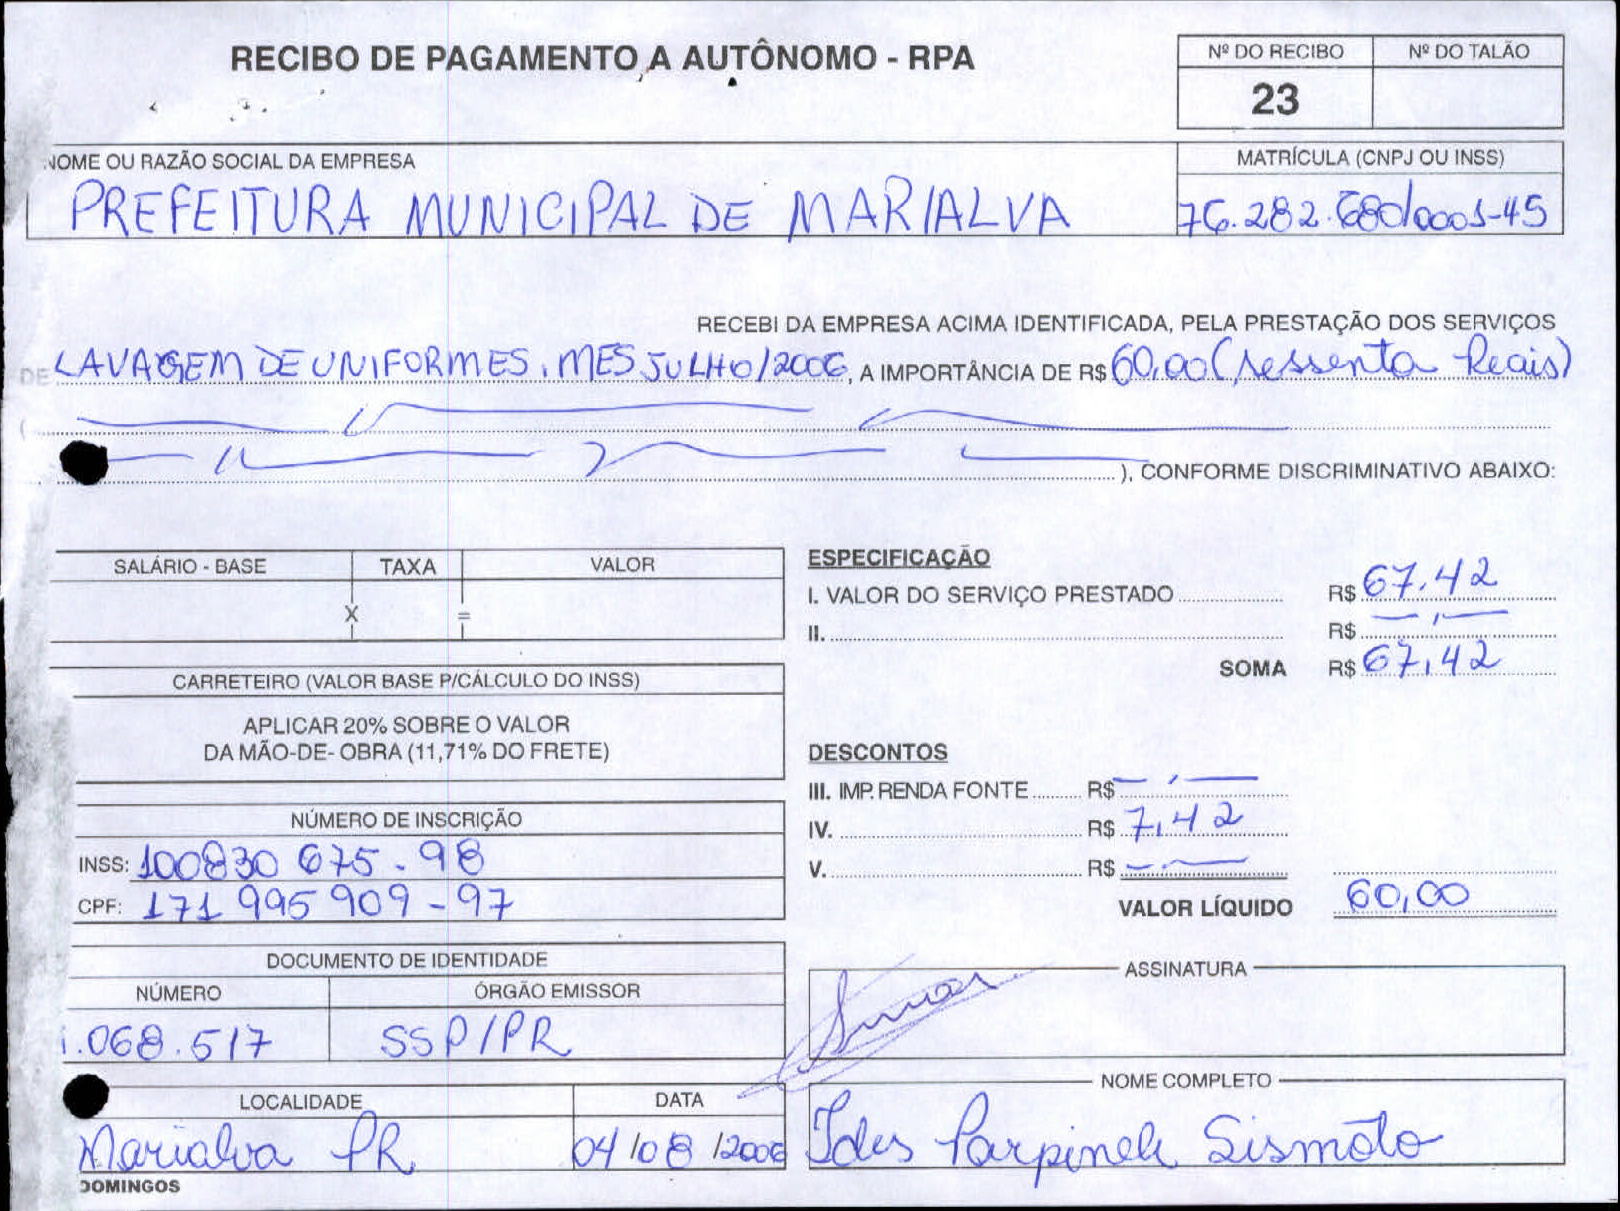 RECIBO DE PAGAMENTO A AUTÔNOMO - RPA
Nº DO RECIBO Nº DO TALÃO
23
NOME OU RAZÃO SOCIAL DA EMPRESA
MATRÍCULA (CNPJ OU INSS)
PREFEITURA MUNICIPAL DE MARIALVA
76.282.680/0001-45
RECEBI DA EMPRESA ACIMA IDENTIFICADA, PELA PRESTAÇÃO DOS SERVIÇOS
DE LAVAGEM DE UNIFORMES. MES JULHO/2006, A IMPORTÂNCIA DE R$ 60,00 (sessenta Reais)
(
), CONFORME DISCRIMINATIVO ABAIXO:
SALÁRIO - BASE TAXA VALOR
X =
CARRETEIRO (VALOR BASE P/CÁLCULO DO INSS)
APLICAR 20% SOBRE O VALOR
DA MÃO-DE- OBRA (11,71% DO FRETE)
NÚMERO DE INSCRIÇÃO
INSS: 100830 675-98
CPF: 171 995 909-97
DOCUMENTO DE IDENTIDADE
NÚMERO ÓRGÃO EMISSOR
.068.517 SSP/PR
LOCALIDADE DATA
Marialva PR 04/08/2006
DOMINGOS
ESPECIFICAÇÃO
I. VALOR DO SERVIÇO PRESTADO R$ 67.42
II. R$ - , -
SOMA R$ 67,42
DESCONTOS
III. IMP. RENDA FONTE R$ - , -
IV. R$ 7,42
V. R$ - . -
VALOR LÍQUIDO 60,00
ASSINATURA
NOME COMPLETO
Ides Parpineli Sismoto